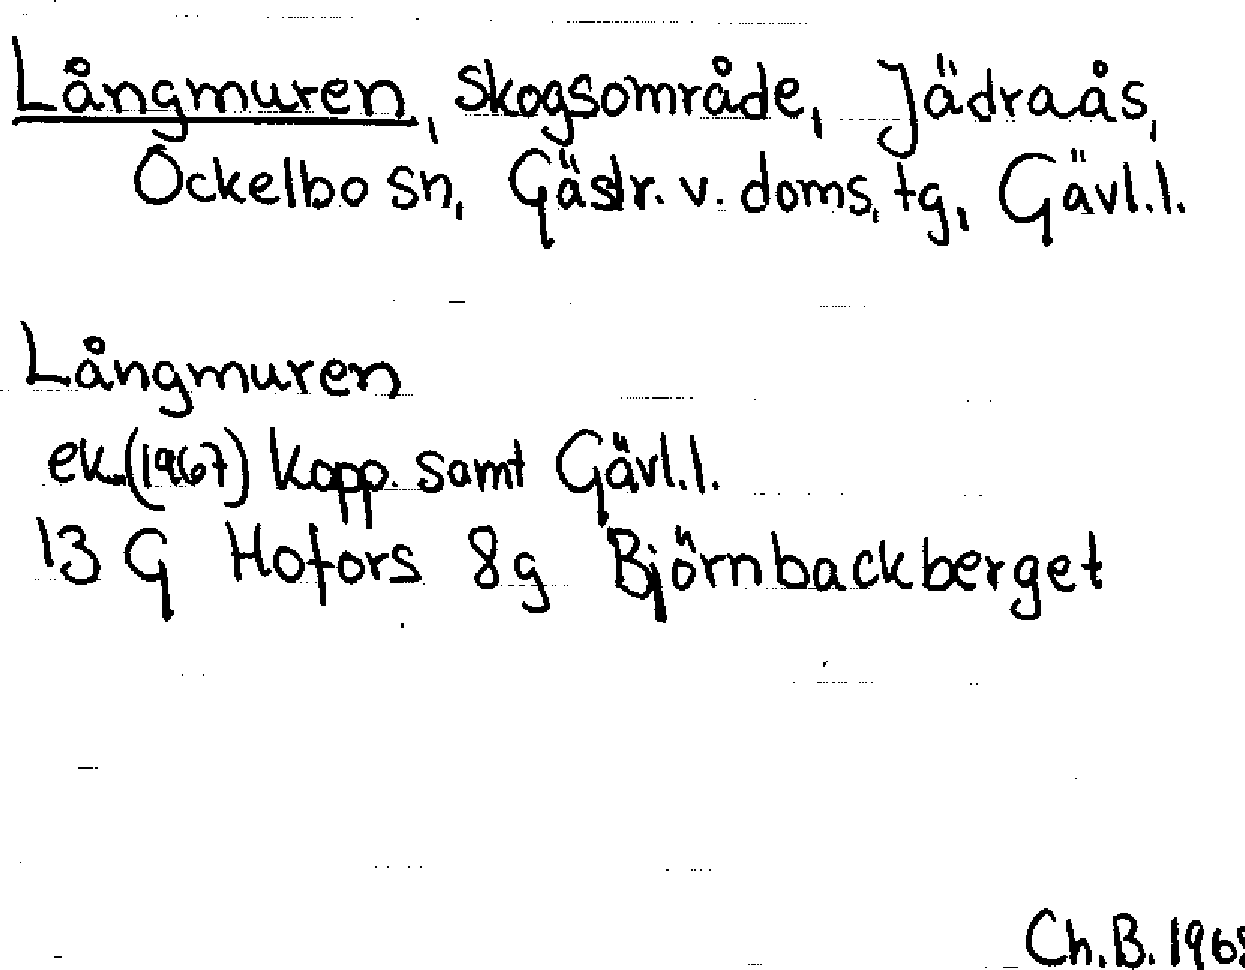 Långmuren, skogsområde, Jädraås,
Ockelbo sn, Gästr. v. doms. tg, Gävl.l.
Långmuren
ek. (1967) Kopp. samt Gävl.l.
13 G Hofors 8g Björnbackberget
Ch.B. 1968